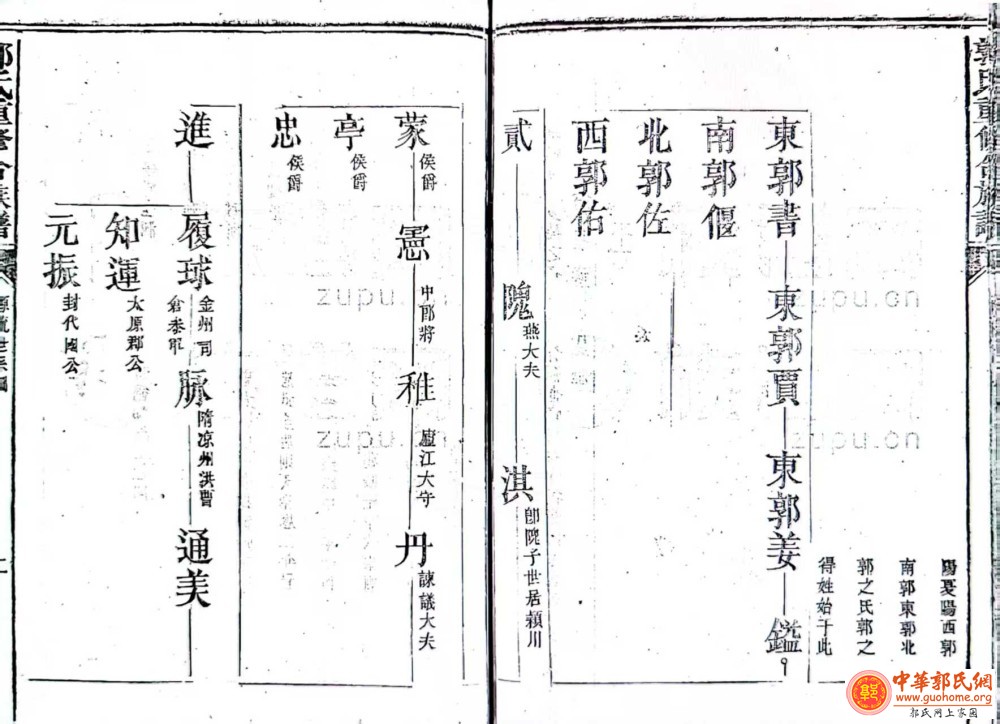 郭氏重修合族譜
陽夏陽西郭
南郭東郭北
郭之氏郭之
得姓始于此
東郭書 東郭賈 東郭姜 鑑
南郭偃
北郭佐
西郭佑
貳 隗 燕大夫 淇 卽隗子世居潁川
蒙 侯爵 憲 中郎將 稚 廬江大守 丹 諫議大夫
亭 侯爵
忠 侯爵
進 履球 金州司
倉參軍 脉 隋凉州洪曹 通美
知運 太原郡公
元振 封代國公
郭氏重修合族譜
zupu.cn
zupu.cn
zupu.cn
zupu.cn
中華郭氏網
www.guohome.org
郭氏网上家园